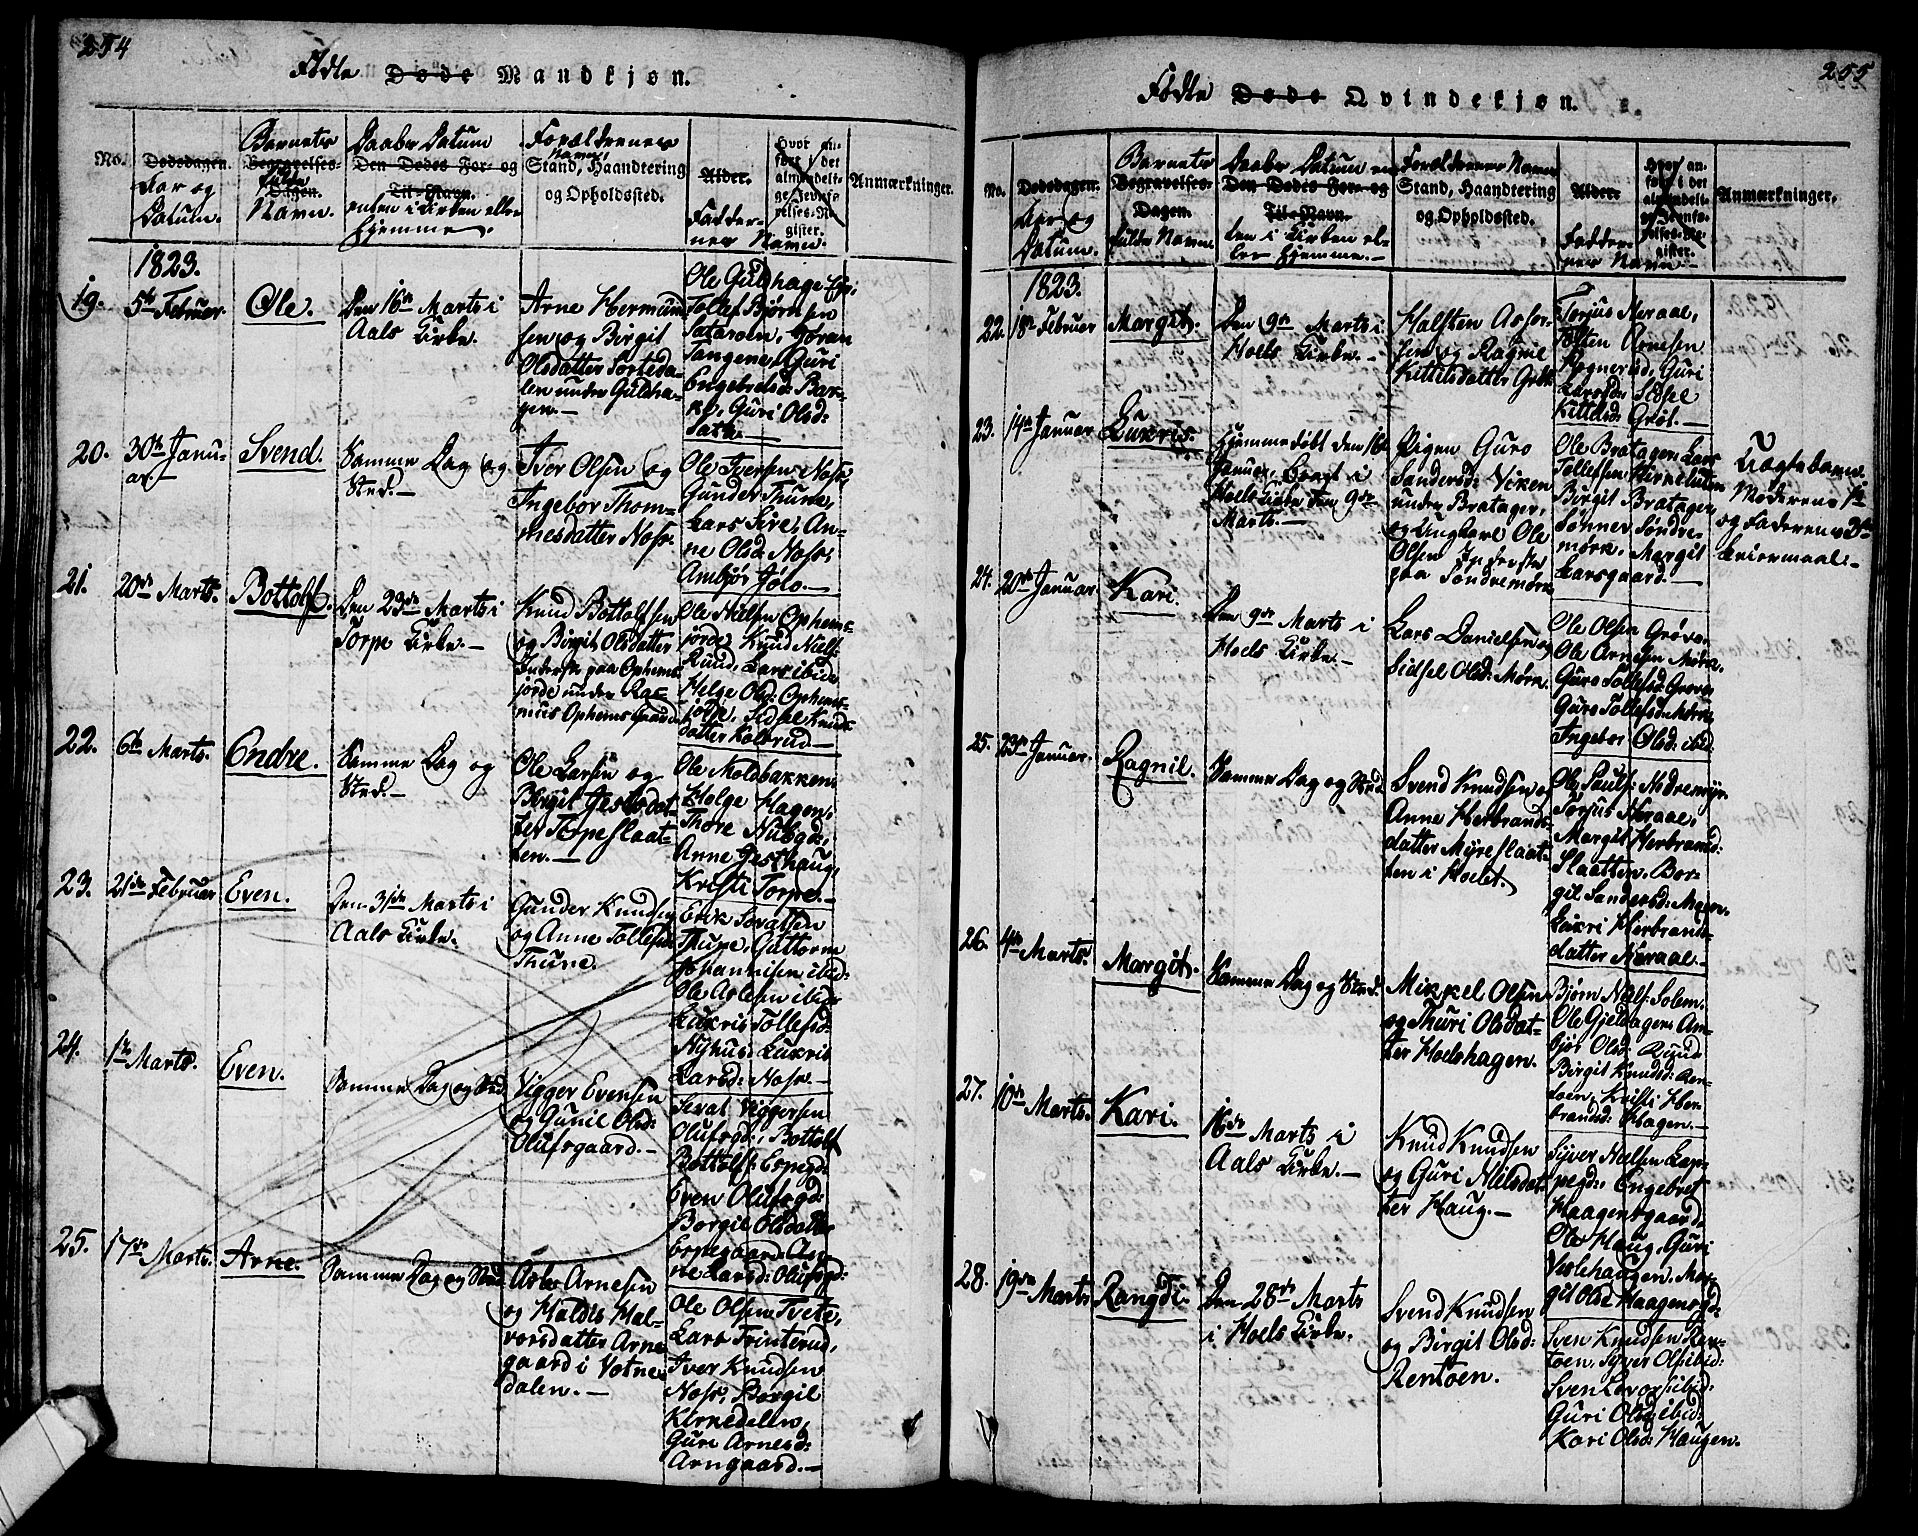 254
Fødte Døde Mandkjøn.
No.
Dødsdagen.
Aar og
Datum.
Barnets
Begravelses-
fulde
Dagen.
Navn.
Daabs Datum
Den Dødes For- og
Til-Navn.
enten i Kirken eller
hjemme.
Forældrenes
Navne,
Stand, Haandtering
og Opholdssted.
Alder.
Fadder-
nes Navn.
Hvor an-
ført i det
almindeli-
ge Jevnfø-
relses-Re-
gister.
Anmærkninger.
1823.
19.
5te Februar.
Ole.
Den 16de Marts i
Aals Kirke.
Arne Hermund-
sen og Birgit
Olsdatter Sorteda-
len under Guldha-
gen.—
Ole Guldhagen
Tollef Bjørnsen
Sataroen, Gøran
Tangene, Guri
Engebretsd: Bak-
ke, Guri Olsd:
Sath.—
20.
30te Janu-
ar.—
Svend.
Samme Dag og
Sted.—
Iver Olsen og
Ingebor Thom-
mesdatter Noss.
Ole Iversen Noss,
Gunder Thune,
Lars Sire, An-
ne Olsd: Noss,
Ambjør Jølo.—
21.
20de Marts.
Bottolf.
Den 23de Marts i
Torpe Kirke.—
Knud Bottolfsen
og Birgit Olsdatter
Inderster paa Ophems-
jorde under Ras-
mus Ophems Gaard
Ole Nielsen Ophems-
jorde, Knud Niels:
Ruud, Lars ibid:
Helge Olsd: Ophems-
jorde, Sidsel Knuds-
datter Kolbrud—
22.
6te Marts.
Endre.
Samme Dag og
Sted.—
Ole Larsen og
Birgit Jestsdat-
ter Torpeslaat-
ten.—
Ole Moldbakken
Holge Hagen,
Thore Nubgd:,
Anne Jesthaug,
Kristi Torpe.—
23.
21de Februar
Even.
Den 31de Marts i
Aals Kirke.
Gunder Knudsen
og Anne Tollefsd
Thune.
Erik Sevatsen
Thune, Guttorm
Johannesen ibid:
Ole Aslesen ibid:
Lukris Tollefsd:
Nyhus, Lukris
Larsd: Noss.—
24.
1te Marts.
Even.
Samme Dag og Sted
Vigger Evensen
og Gunil Olsd:
Olufsgaard.—
Sevat Viggersen
Olufsgd:, Bottolf
Bottolfs: Espegd:
Even Olufsgd:
Borgil Olsdatter
Espegaard, An-
ne Larsd: Olufsgd:
25.
17de Marts.
Arne.
Samme Dag og Sted
Asle Arnesen
og Haldis Hal-
vorsdatter Arne-
gaard i Votne-
dalen.—
Ole Olsen Tvete,
Lars Trinterud,
Iver Knudsen
Noss, Borgil
Kirnedelen,
Guri Arnesd:
Arngaard.—
255
Fødte Døde Qvindekjøn.
No.
Dødsdagen.
Aar og
Datum.
Barnets
Begravelses-
Dagen.
fulde Navn.
Daabs Datum en-
Den Dødes For- og
Til-Navn.
ten i Kirken el-
ler hjemme.—
Forældrenes Navn
Stand, Haandtering
og Opholdssted.
Alder.
Fadder-
nes Navn.—
Hvor an-
ført i det
almindeli-
ge Jevnfø-
relses-Re-
gister.
Anmærkninger.
1823.
22.
18de Februar
Margit.
Den 9de Marts i
Hoels Kirke.—
Halsten Assor-
sen og Ragnil
Kittilsdatter Grøt
Torjus Noraal,
Tosten Arnesen
Rognerud, Guri
Larsdr: Sidsel
Kittilsd: Grøt.—
23.
14de Januar
Lukris.
Hjemmedøbt den 16
Januar, bragt i
Hoels Kirke den 9de
Marts.—
Pigen Guro
Sandersd: Viken
under Bratager,
og Ungkarl Ole
Olsen Inderste
paa Søndremørk
Ole Bratagen, Lars
Tollefsen Kirneluten
Birgit Bratagen,
Sønner Søndre-
mørk, Margit
Larsgaard.—
Uægte barn.
Moderens 1te
og Faderens 3die
Leiermaal.—
24.
20de Januar.
Kari.
Den 9de Marts i
Hoels Kirke.—
Lars Danielsen og
Sidsel Olsd: Mørk.
Ole Olsen Grøvo
Ole Arnesen Mørk,
Guro Tollefsd: Grøvo,
Guro Tollefsd: Mørk,
Ingebor Olsd: ibid:
25.
23de Januar.
Ragnil.
Samme Dag og Sted
Svend Knudsen og
Anne Herbrands-
datter Myreslaat-
ten i Hoelet.
Ole Pauls: Nedremyr
Torjus Noraal,
Margit Herbrandsd:
Slaatten, Bor-
gil Sandersd: Myr.
Lukri Herbrands-
datter Noraal.—
26.
4de Marts.
Margit.
Samme Dag og Sted.
Mikkel Olsen
og Thuri Olsdat-
ter Hoelshagen.
Bjørn Niels: Solem,
Ole Gjeldagen, Am-
bjør Olsd: Ruud
Birgit Knudsd: Ren-
toen, Kristi Her-
brandsd: Hagen.—
27.
10de Marts.
Kari.
16de Marts i
Aals Kirke.—
Knud Knudsen
og Guri Nielsdat-
ter Haug.—
Syver Nielsen Lap-
pegd:, Engebret
Haagensgaard,
Ole Haug, Guri
Veslehaugen, Mar-
git Olsd: Haagensgd:
28.
19de Marts
Rangdi.
Den 28de Marts
i Hoels Kirke.
Svend Knudsen
og Birgit Olsd:
Rentoen.
Sven Knudsen Ren-
toen, Syver Ols: ibid:
Sven Lars: ibid:
Guri Olsd: ibid:
Kari Olsd: Haugen.